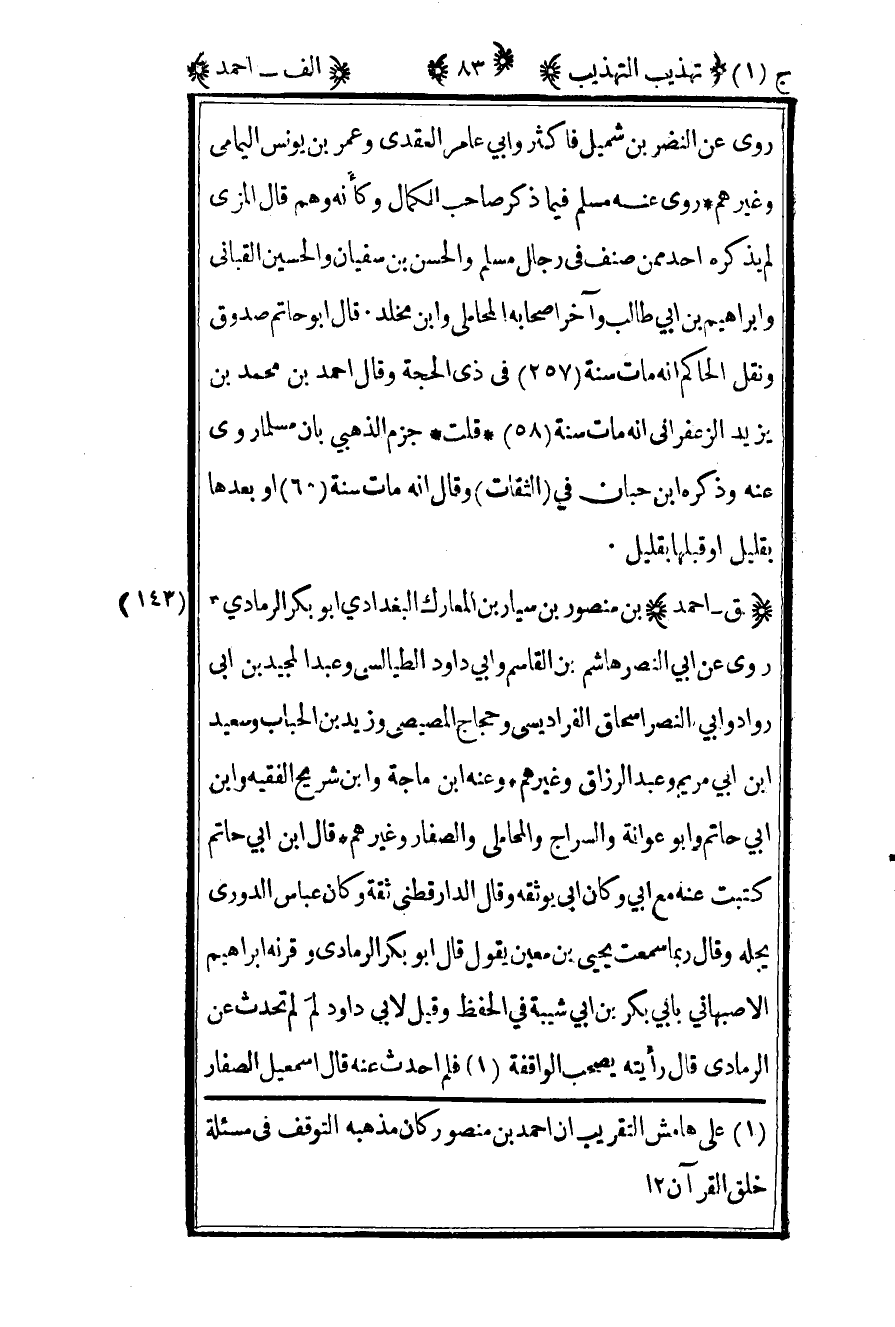 ج (١) ﴿ تهذيب التهذيب ﴾ ﴿ ٨٣ ﴾ ﴿ الف ــ احمد ﴾
روى عن النضر بن شميل فاكثر وابي عامر العقدى وعمر بن يونس اليمامى
وغيرهم * روى عنه مسلم فيما ذكر صاحب الكمال وكأنه وهم قال المزى
لم يذكره احد ممن صنف فى رجال مسلم والحسن بن سفيان والحسين القبانى
وابراهيم بن ابي طالب وآخر اصحابه المحاملى وابن مخلد ٠ قال ابو حاتم صدوق
ونقل الحاكم انه مات سنة (٢٥٧) فى ذى الحجة وقال احمد بن محمد بن
يزيد الزعفرانى انه مات سنة (٥٨) * قلت * جزم الذهبي بان مسلما روى
عنه وذكره ابن حبان في (الثقات) وقال انه مات سنة (٦٠) او بعدها
بقليل او قبلها بقليل ٠
﴿ ق ــ احمد ﴾ بن منصور بن سيار بن المعارك البغدادي ابو بكر الرمادي * (١٤٣)
روى عن ابي النصر هاشم بن القاسم وابي داود الطيالسى وعبد المجيد بن ابى
رواد وابي النصر اسحاق الفراديسى وحجاج المصيصى وزيد بن الحباب وسعيد
ابن ابي مريم وعبد الرزاق وغيرهم * وعنه ابن ماجة وابن شريح الفقيه وابن
ابي حاتم وابو عوانة والسراج والمحاملى والصفار وغيرهم * قال ابن ابي حاتم
كتبت عنه مع ابي وكان ابى يوثقه وقال الدارقطنى ثقة وكان عباس الدورى
يجله وقال ربما سمعت يحيى بن معين يقول قال ابو بكر الرمادى وقرنه ابراهيم
الاصبهاني بابي بكر بن ابي شيبة في الحفظ وقيل لابي داود لم لم تحدث عن
الرمادى قال رأيته يصحب الواقفة (١) فلم احدث عنه قال اسمعيل الصفار
(١) على هامش التقريب ان احمد بن منصور كان مذهبه التوقف فى مسئلة
خلق القرآن ١٢